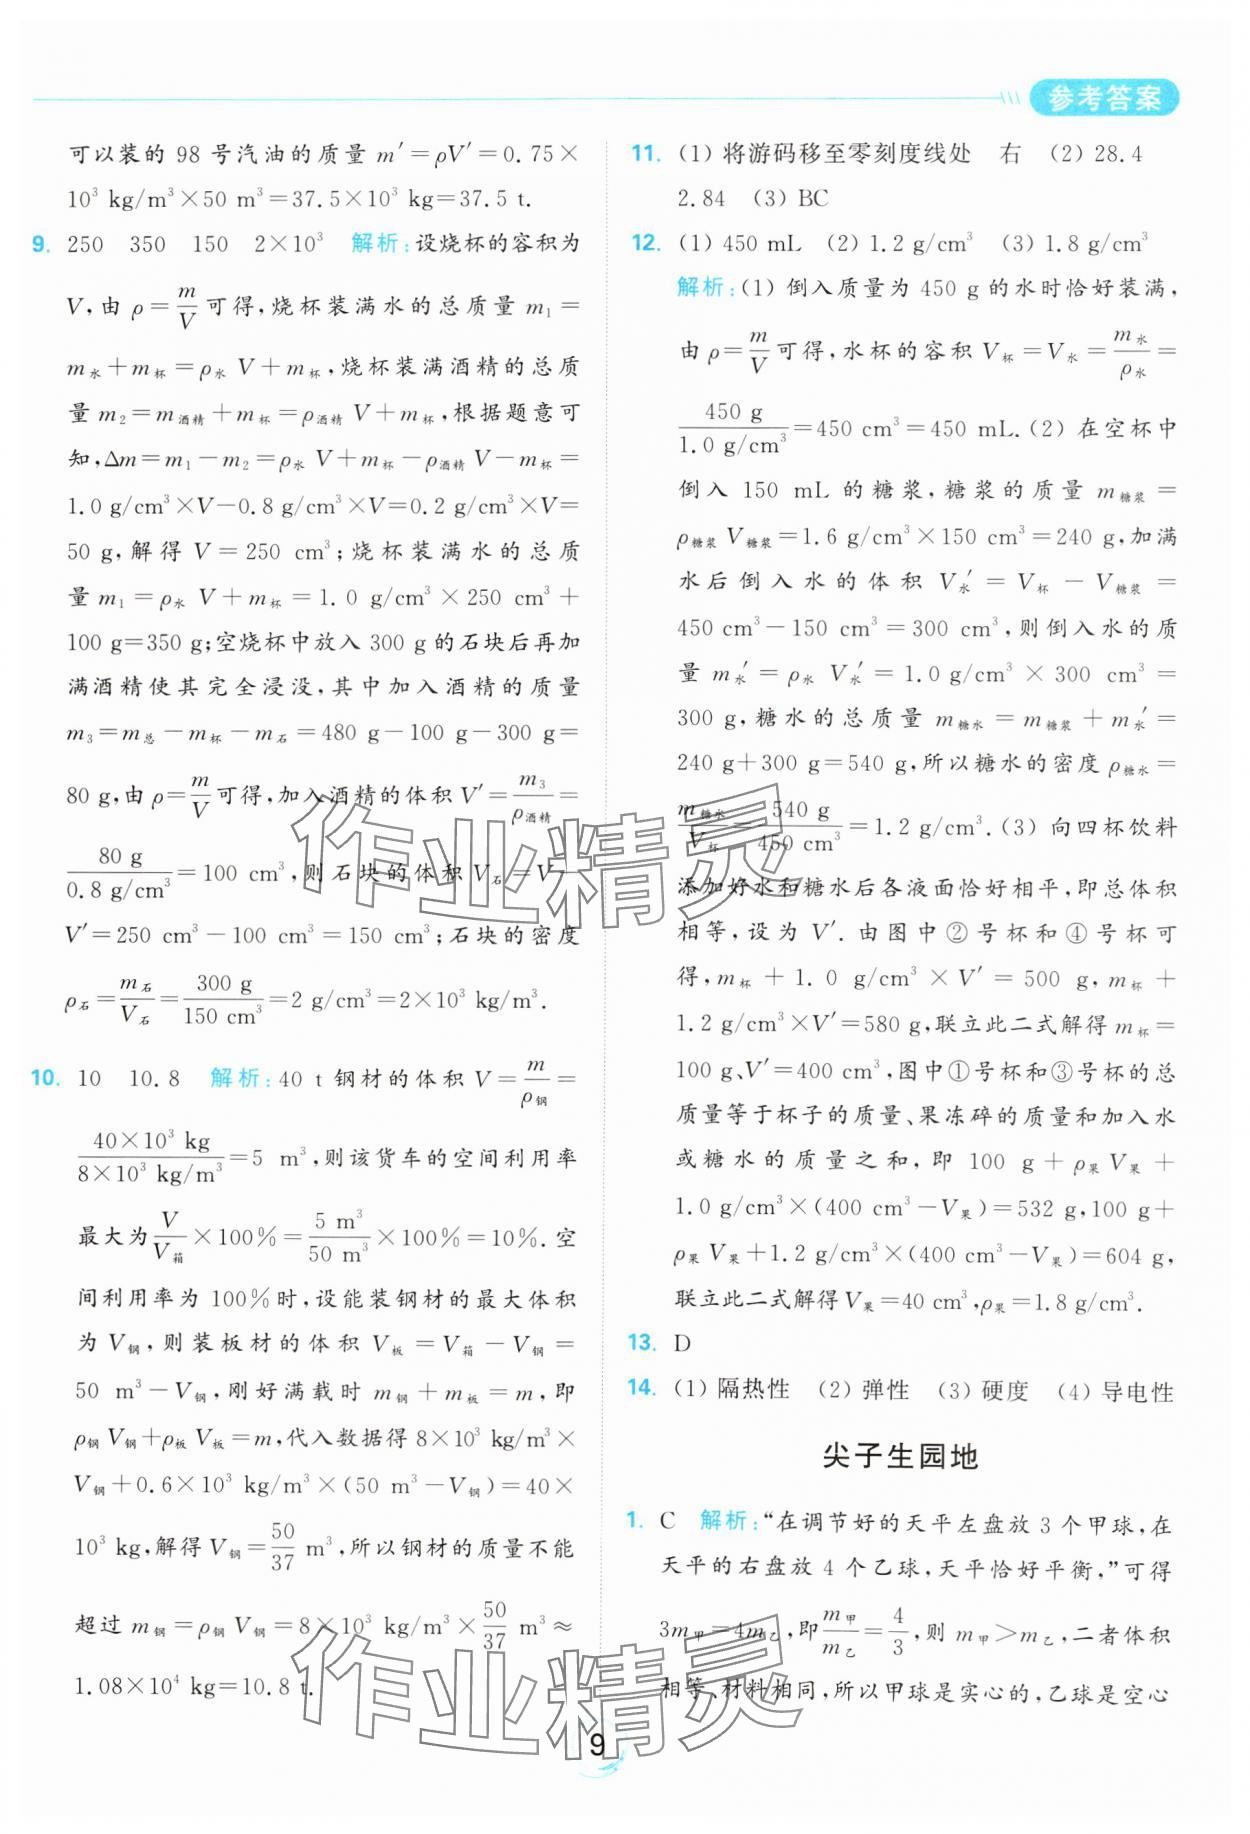 参考答案
可以装的 98 号汽油的质量 m′＝ρV′＝0.75×
10³ kg/m³×50 m³＝37.5×10³ kg＝37.5 t.
9. 250 350 150 2×10³ 解析:设烧杯的容积为
V,由 ρ＝m/V 可得,烧杯装满水的总质量 m₁＝
m水＋m杯＝ρ水 V＋m杯,烧杯装满酒精的总质
量 m₂＝m酒精＋m杯＝ρ酒精 V＋m杯,根据题意可
知,Δm＝m₁－m₂＝ρ水 V＋m杯－ρ酒精 V－m杯＝
1.0 g/cm³×V－0.8 g/cm³×V＝0.2 g/cm³×V＝
50 g,解得 V＝250 cm³;烧杯装满水的总质
量 m₁＝ρ水 V＋m杯＝1.0 g/cm³×250 cm³＋
100 g＝350 g;空烧杯中放入 300 g 的石块后再加
满酒精使其完全浸没,其中加入酒精的质量
m₃＝m总－m杯－m石＝480 g－100 g－300 g＝
80 g,由 ρ＝m/V 可得,加入酒精的体积 V′＝m₃/ρ酒精＝
80 g/0.8 g/cm³＝100 cm³,则石块的体积 V石＝V－
V′＝250 cm³－100 cm³＝150 cm³;石块的密度
ρ石＝m石/V石＝300 g/150 cm³＝2 g/cm³＝2×10³ kg/m³.
10. 10 10.8 解析:40 t 钢材的体积 V＝m/ρ钢＝
40×10³ kg/8×10³ kg/m³＝5 m³,则该货车的空间利用率
最大为V/V箱×100%＝5 m³/50 m³×100%＝10%.空
间利用率为 100%时,设能装钢材的最大体积
为 V钢,则装板材的体积 V板＝V箱－V钢＝
50 m³－V钢,刚好满载时 m钢＋m板＝m,即
ρ钢 V钢＋ρ板 V板＝m,代入数据得 8×10³ kg/m³×
V钢＋0.6×10³ kg/m³×(50 m³－V钢)＝40×
10³ kg,解得 V钢＝50/37 m³,所以钢材的质量不能
超过 m钢＝ρ钢 V钢＝8×10³ kg/m³×50/37 m³≈
1.08×10⁴ kg＝10.8 t.
11. (1) 将游码移至零刻度线处 右 (2) 28.4
2.84 (3) BC
12. (1) 450 mL (2) 1.2 g/cm³ (3) 1.8 g/cm³
解析:(1) 倒入质量为 450 g 的水时恰好装满,
由 ρ＝m/V 可得,水杯的容积 V杯＝V水＝m水/ρ水＝
450 g/1.0 g/cm³＝450 cm³＝450 mL.(2) 在空杯中
倒入 150 mL 的糖浆,糖浆的质量 m糖浆＝
ρ糖浆 V糖浆＝1.6 g/cm³×150 cm³＝240 g,加满
水后倒入水的体积 V水′＝V杯－V糖浆＝
450 cm³－150 cm³＝300 cm³,则倒入水的质
量 m水′＝ρ水 V水′＝1.0 g/cm³×300 cm³＝
300 g,糖水的总质量 m糖水＝m糖浆＋m水′＝
240 g＋300 g＝540 g,所以糖水的密度 ρ糖水＝
m糖水/V杯＝540 g/450 cm³＝1.2 g/cm³.(3) 向四杯饮料
添加好水和糖水后各液面恰好相平,即总体积
相等,设为 V′.由图中②号杯和④号杯可
得,m杯＋1.0 g/cm³×V′＝500 g,m杯＋
1.2 g/cm³×V′＝580 g,联立此二式解得 m杯＝
100 g、V′＝400 cm³,图中①号杯和③号杯的总
质量等于杯子的质量、果冻碎的质量和加入水
或糖水的质量之和,即 100 g＋ρ果 V果＋
1.0 g/cm³×(400 cm³－V果)＝532 g,100 g＋
ρ果 V果＋1.2 g/cm³×(400 cm³－V果)＝604 g,
联立此二式解得 V果＝40 cm³,ρ果＝1.8 g/cm³.
13. D
14. (1) 隔热性 (2) 弹性 (3) 硬度 (4) 导电性
尖子生园地
1. C 解析:“在调节好的天平左盘放 3 个甲球,在
天平的右盘放 4 个乙球,天平恰好平衡,”可得
3m甲＝4m乙,即m甲/m乙＝4/3,则 m甲＞m乙,二者体积
相等、材料相同,所以甲球是实心的,乙球是空心
9
作业精灵
作业精灵